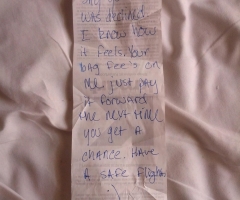 was declined.
I know how
it feels. Your
bag fee's on
me just pay
it forward
the next time
you get a
chance. Have
A safe flight